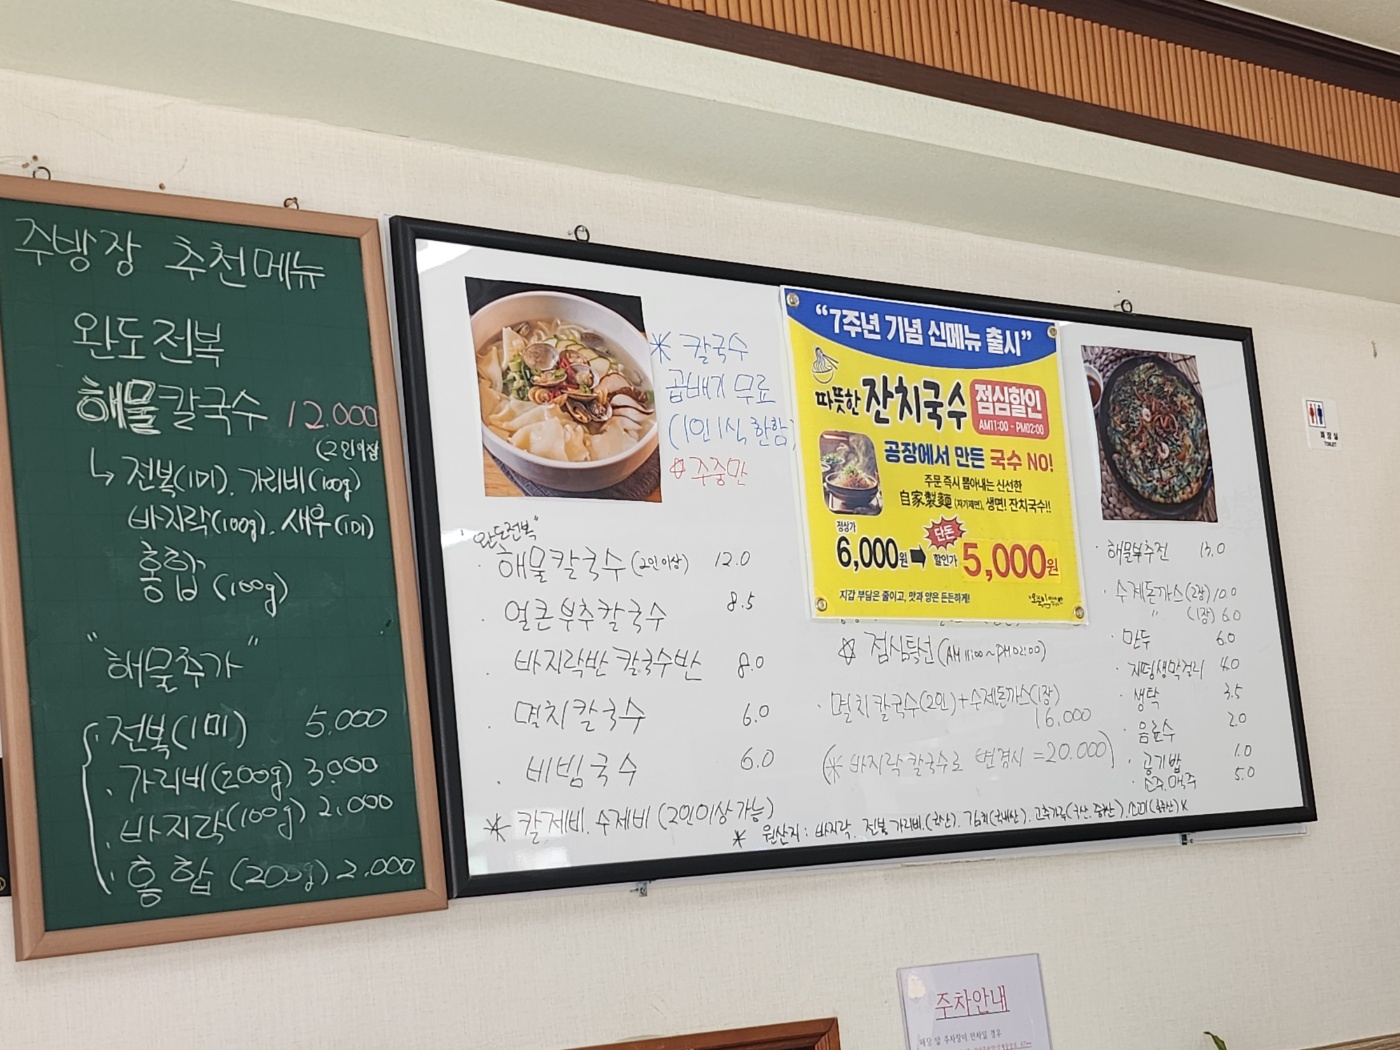 주방장 추천메뉴
완도전복
해물칼국수 12.000
(2인이상
↳ 전복(1미). 가리비(100g)
바지락(100g). 새우(1미)
홍합 (100g)
"해물추가"
전복(1미) 5.000
가리비(200g) 3.000
바지락(100g) 2.000
홍합 (200g) 2.000
* 칼국수
곱배기 무료
(1인1식 한함)
☆ 주중만
"완도전복"
해물칼국수 (2인이상) 12.0
얼큰부추칼국수 8.5
바지락반 칼국수반 8.0
멸치칼국수 6.0
비빔국수 6.0
* 칼제비. 수제비 (2인이상 가능)
"7주년 기념 신메뉴 출시"
따뜻한 잔치국수 점심할인
AM11:00 - PM02:00
공장에서 만든 국수 NO!
주문 즉시 뽑아내는 신선한
自家製麵 (자가제면), 생면! 잔치국수!!
정상가 6,000원 단돈 할인가 5,000원
지갑 부담은 줄이고, 맛과 양은 든든하게!
☆ 점심특선 (AM 11:00~PM 02:00)
멸치칼국수(2인)+수제돈까스(1장)
16,000
(* 바지락 칼국수로 변경시 = 20.000)
해물부추전 13.0
수제돈까스(2장) 10.0
" (1장) 6.0
만두 6.0
지평생막걸리 4.0
생탁 3.5
음료수 2.0
공기밥 1.0
소주.맥주 5.0
* 원산지 : 바지락. 전복.
화장실
TOILET
주차안내